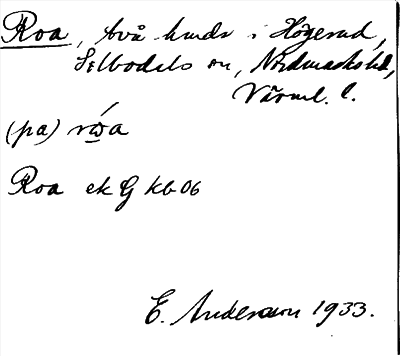 Roa, två hmdr i Högerud,
Silbodals sn, Nordmarks hd,
Värml. l.
(pa) rωa
Roa ek G kb 06
E. Anderson 1933.